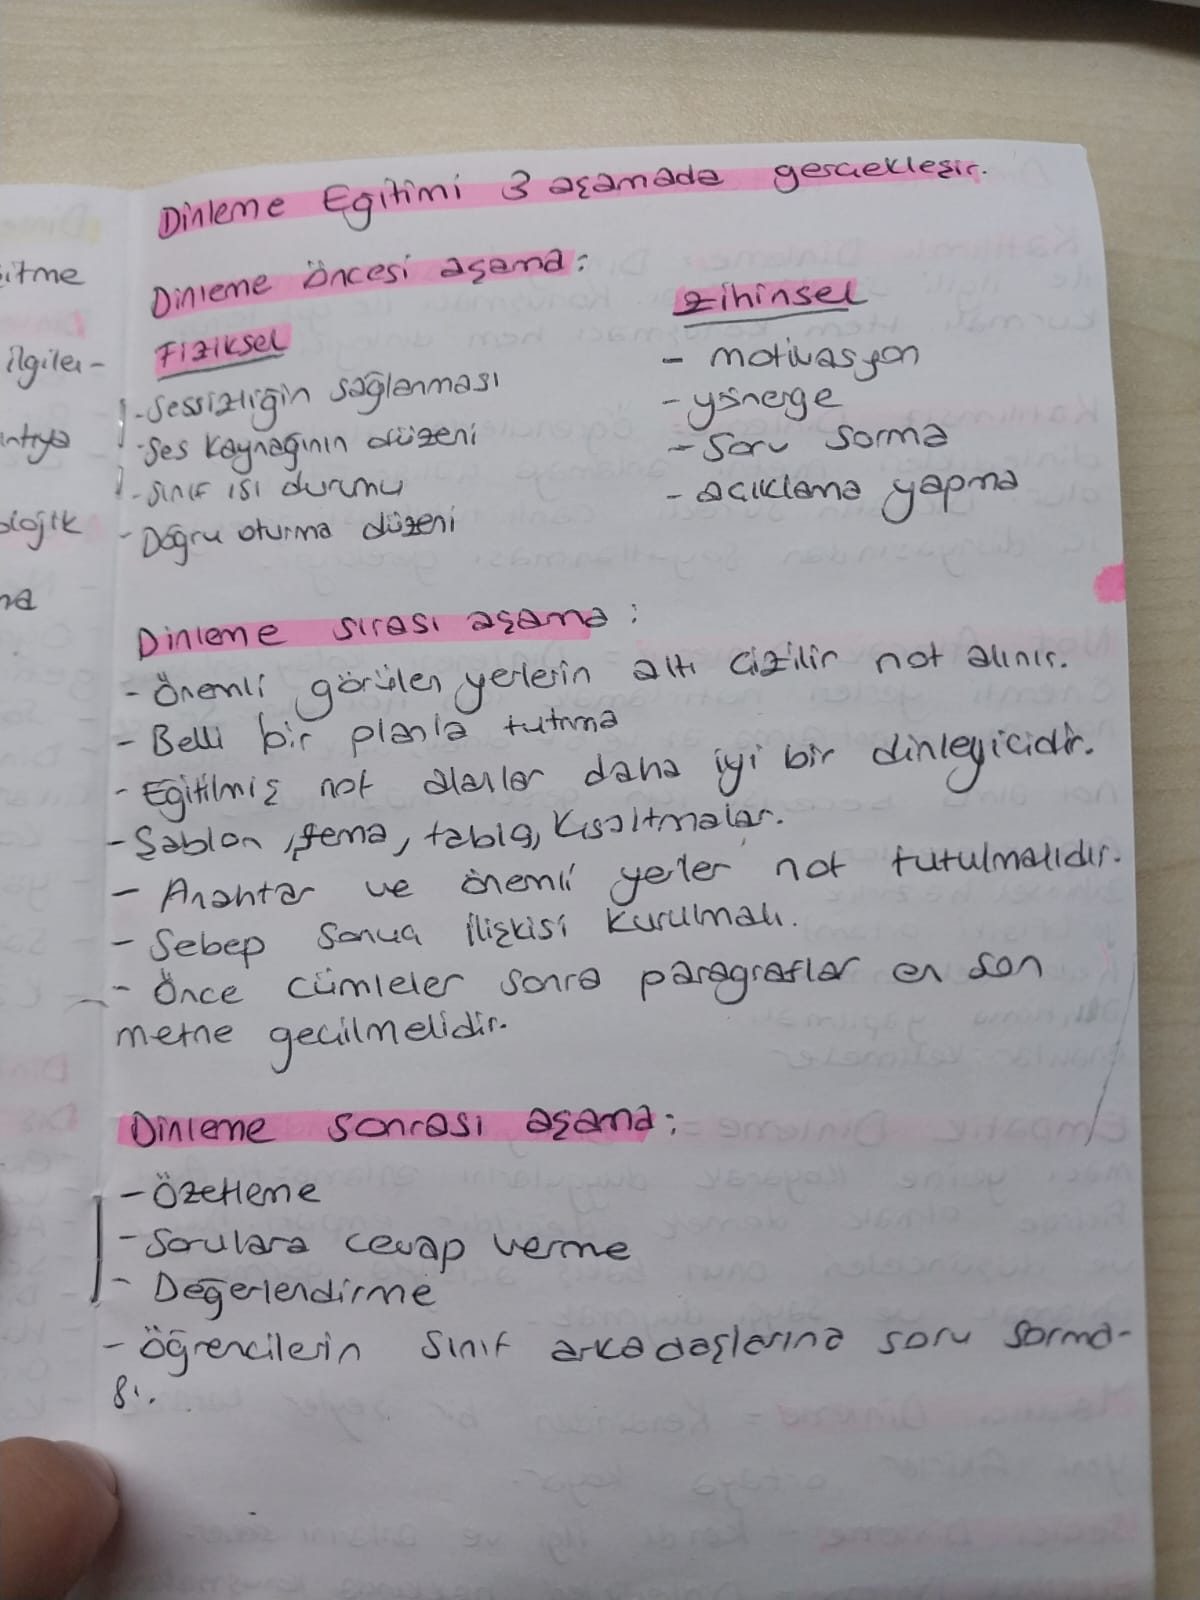 Dinleme Eğitimi 3 aşamada gerçekleşir.
Dinleme öncesi aşama:
Fiziksel
- Sessizliğin sağlanması
- Ses kaynağının düzeni
- Sınıf ısı durumu
- Doğru oturma düzeni
Zihinsel
- motivasyon
- yönerge
- Soru sorma
- açıklama yapma
Dinleme sırası aşama:
- Önemli görülen yerlerin altı çizilir not alınır.
- Belli bir planla tutma
- Eğitilmiş not alanlar daha iyi bir dinleyicidir.
- Şablon, şema, tablo, Kısaltmalar.
- Anahtar ve önemli yerler not tutulmalıdır.
- Sebep sonuç ilişkisi kurulmalı.
- Önce cümleler sonra paragraflar en son
metne geçilmelidir.
Dinleme sonrası aşama:
- Özetleme
- Sorulara cevap verme
- Değerlendirme
- Öğrencilerin sınıf arkadaşlarına soru sorma-
sı.